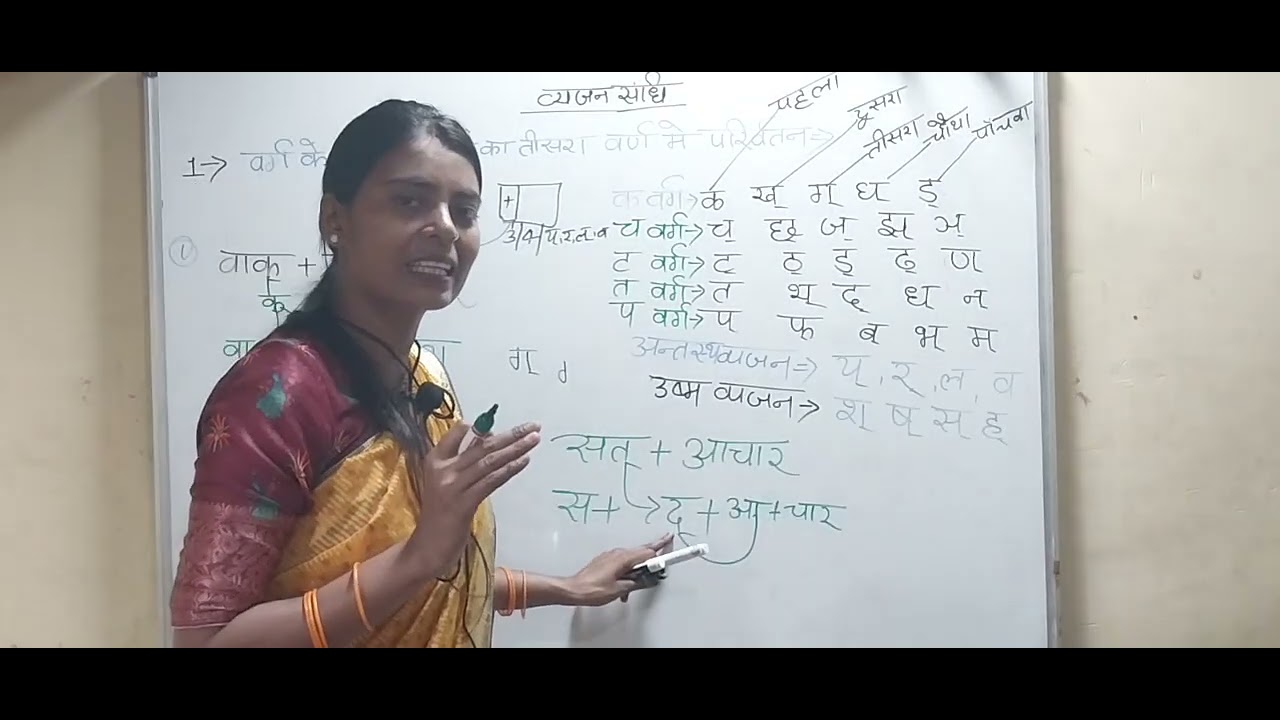 व्यजन संधि
पहला दूसरा तीसरा चौथा पाँचवा
1→ वर्ग के का तीसरा वर्ण मे परिवतन⇒
क वर्ग→ क ख् ग् घ ड़्
+
च वर्ग→ च् छ् ज् झ् ञ्
① वाक् +
ट वर्ग→ ट् ठ् ड् ढ् ण
क्
त वर्ग→ त थ् द् ध न
प वर्ग→ प् फ ब् भ् म
वा ग्
अन्तस्थव्यजन⇒ य्, र्, ल, व
उष्म व्यजन→ श् ष् स् ह्
सत् + आचार
स+ → द् + आ + चार